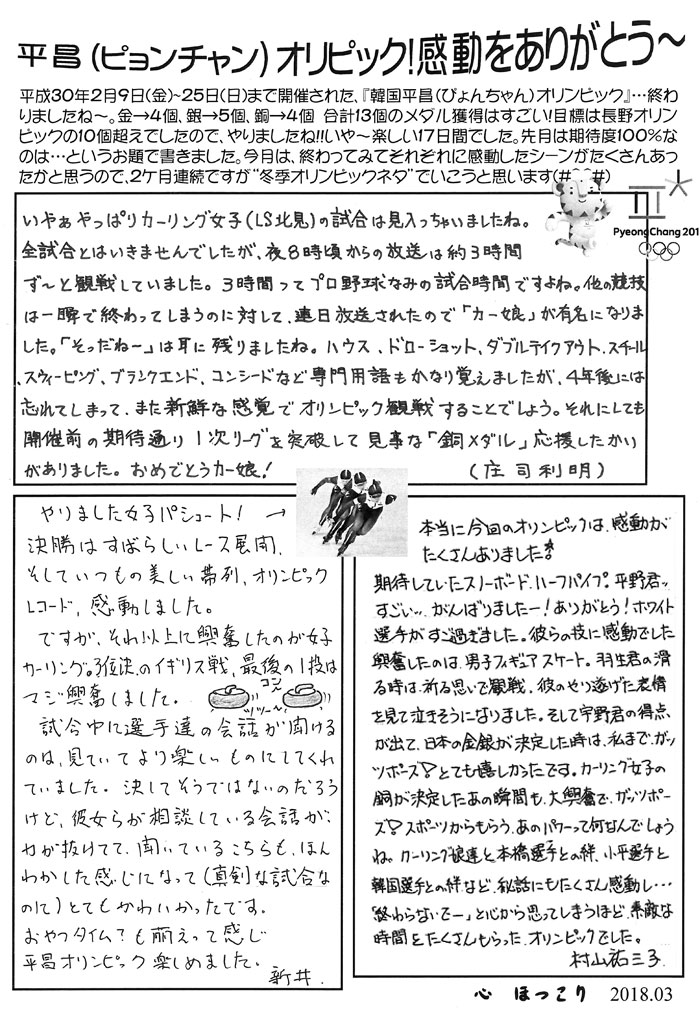 平昌(ピョンチャン)オリピック!感動をありがとう〜
平成30年2月9日(金)~25日(日)まで開催された、『韓国平昌(ぴょんちゃん)オリンピック』…終わ
りましたね〜。金→4個、銀→5個、銅→4個 合計13個のメダル獲得はすごい!目標は長野オリン
ピックの10個超えでしたので、やりましたね!!いや〜楽しい17日間でした。先月は期待度100%な
のは…というお題で書きました。今月は、終わってみてそれぞれに感動したシーンがたくさんあっ
たかと思うので、2ケ月連続ですが"冬季オリンピックネタ"でいこうと思います(#^^#)
PyeongChang 201
いやぁやっぱりカーリング女子(LS北見)の試合は見入っちゃいましたね。
全試合とはいきませんでしたが、夜8時頃からの放送は約3時間
ず〜と観戦していました。3時間ってプロ野球なみの試合時間ですよね。他の競技
は一瞬で終わってしまうのに対して、連日放送されたので「カー娘」が有名になりま
した。「そっだねー」は耳に残りましたね。ハウス、ドローショット、ダブルテイクアウト、スチール
、スウィーピング、ブランクエンド、コンシードなど専門用語もかなり覚えましたが、4年後には
忘れてしまって、また新鮮な感覚でオリンピック観戦することでしょう。それにしても
開催前の期待通り1次リーグを突破して見事な「銅メダル」応援したかい
がありました。おめでとうカー娘!　(庄司利明)
やりました女子パシュート! →
決勝はすばらしいレース展開、
そしていつもの美しい隊列、オリンピック
レコード、感動しました。
ですが、それ以上に興奮したのが女子
カーリング。3位決のイギリス戦、最後の1投は
マジ興奮しました。
コン〜
ツツー〜
試合中に選手達の会話が聞ける
のは、見ていてより楽しいものにしてくれ
ていました。決してそうではないのだろう
けど、彼女らが相談している会話が、
力が抜けてて、聞いているこちらも、ほん
わかした感じになって(真剣な試合な
のに)とてもかわいかったです。
おやつタイム?も萌えって感じ
平昌オリンピック楽しめました。
新井.
本当に今回のオリンピックは、感動が
たくさんありました!
期待していたスノーボード、ハーフパイプ。平野君ッ
すごいッ、がんばりましたー!ありがとう!ホワイト
選手がすご過ぎました。彼らの技に感動でした
興奮したのは、男子フィギュアスケート。羽生君の滑
る時は、祈る思いで観戦、彼のやり遂げた表情
を見て泣きそうになりました。そして宇野君の得点
が出て、日本の金銀が決定した時は、私まで、ガッ
ツポーズ!とても嬉しかったです。カーリング女子の
銅が決定したあの瞬間も、大興奮で、ガッツポー
ズ!スポーツからもらう、あのパワーって何なんでしょう
ね。カーリング娘達と本橋選手との絆、小平選手と
韓国選手との絆など、秘話にもたくさん感動し…
「終わらないでー」と心から思ってしまうほど、素敵な
時間をたくさんもらった、オリンピックでした。
村山祐三子
心 ほっこり 2018.03